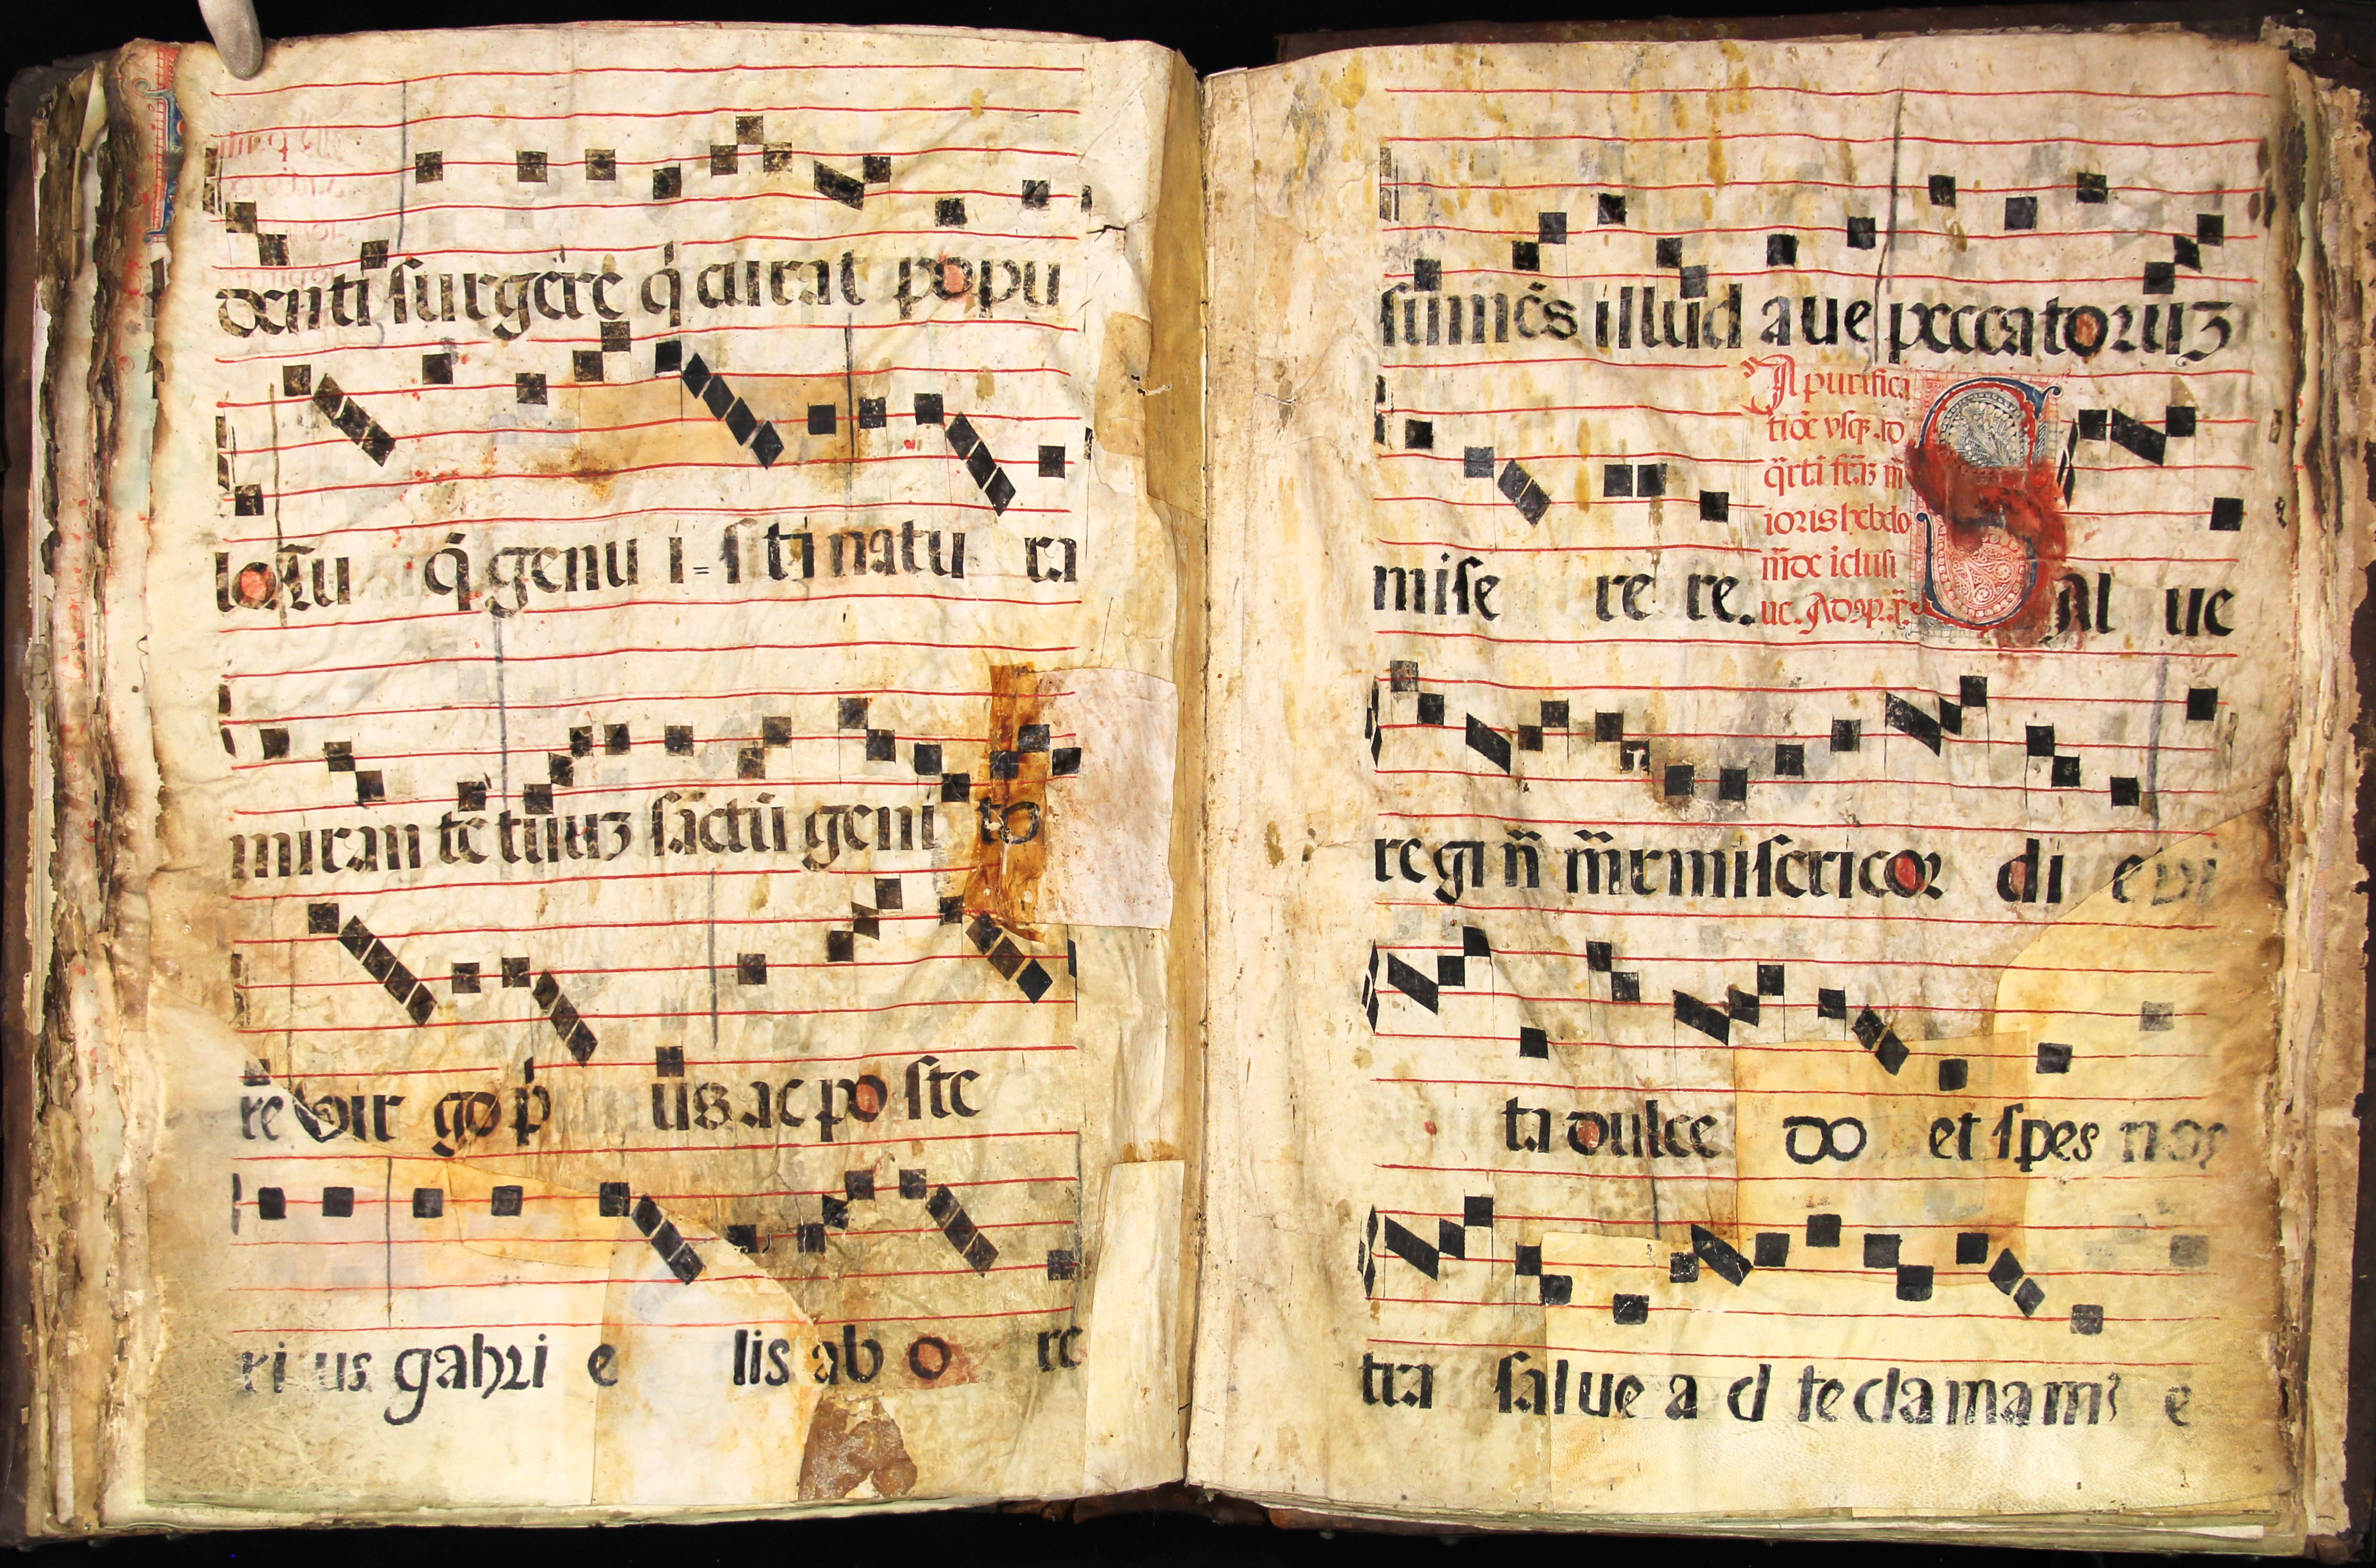 denti surgere q̃ curat popu
lo. tu q̃ genu i=sti natu ra
miran te tuuʒ sāctū geni to
rē Vir go p̃ us ac po ste
ri us gabꝛi e lis ab o re
sumēs illud aue peccatoꝛuʒ
A purifica
tiōe vsqʒ .ad
q̄rtā fiāʒ m̄
ioris hebdo
m̄de iclusi
mise re re. ue.
S al ue
re gi n̄ m̄r misericoꝛ di e vi
ta dulce do et spes nos
tra salue a d te clamamꝰ e